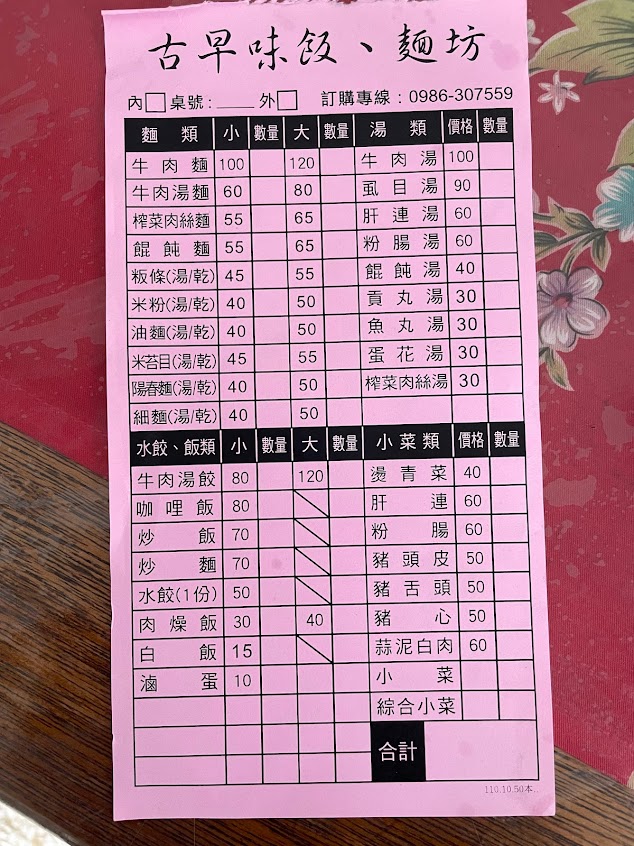 古早味飯、麵坊
內□桌號:____外□ 訂購專線:0986-307559
麵類 小 數量 大 數量 湯類 價格 數量
牛肉麵 100 120 牛肉湯 100
牛肉湯麵 60 80 虱目湯 90
榨菜肉絲麵 55 65 肝連湯 60
餛飩麵 55 65 粉腸湯 60
粄條(湯/乾) 45 55 餛飩湯 40
米粉(湯/乾) 40 50 貢丸湯 30
油麵(湯/乾) 40 50 魚丸湯 30
米苔目(湯/乾) 45 55 蛋花湯 30
陽春麵(湯/乾) 40 50 榨菜肉絲湯 30
細麵(湯/乾) 40 50
水餃、飯類 小 數量 大 數量 小菜類 價格 數量
牛肉湯餃 80 120 燙青菜 40
咖哩飯 80 肝連 60
炒飯 70 粉腸 60
炒麵 70 豬頭皮 50
水餃(1份) 50 豬舌頭 50
肉燥飯 30 40 豬心 50
白飯 15 蒜泥白肉 60
滷蛋 10 小菜
綜合小菜
合計
110.10.50本